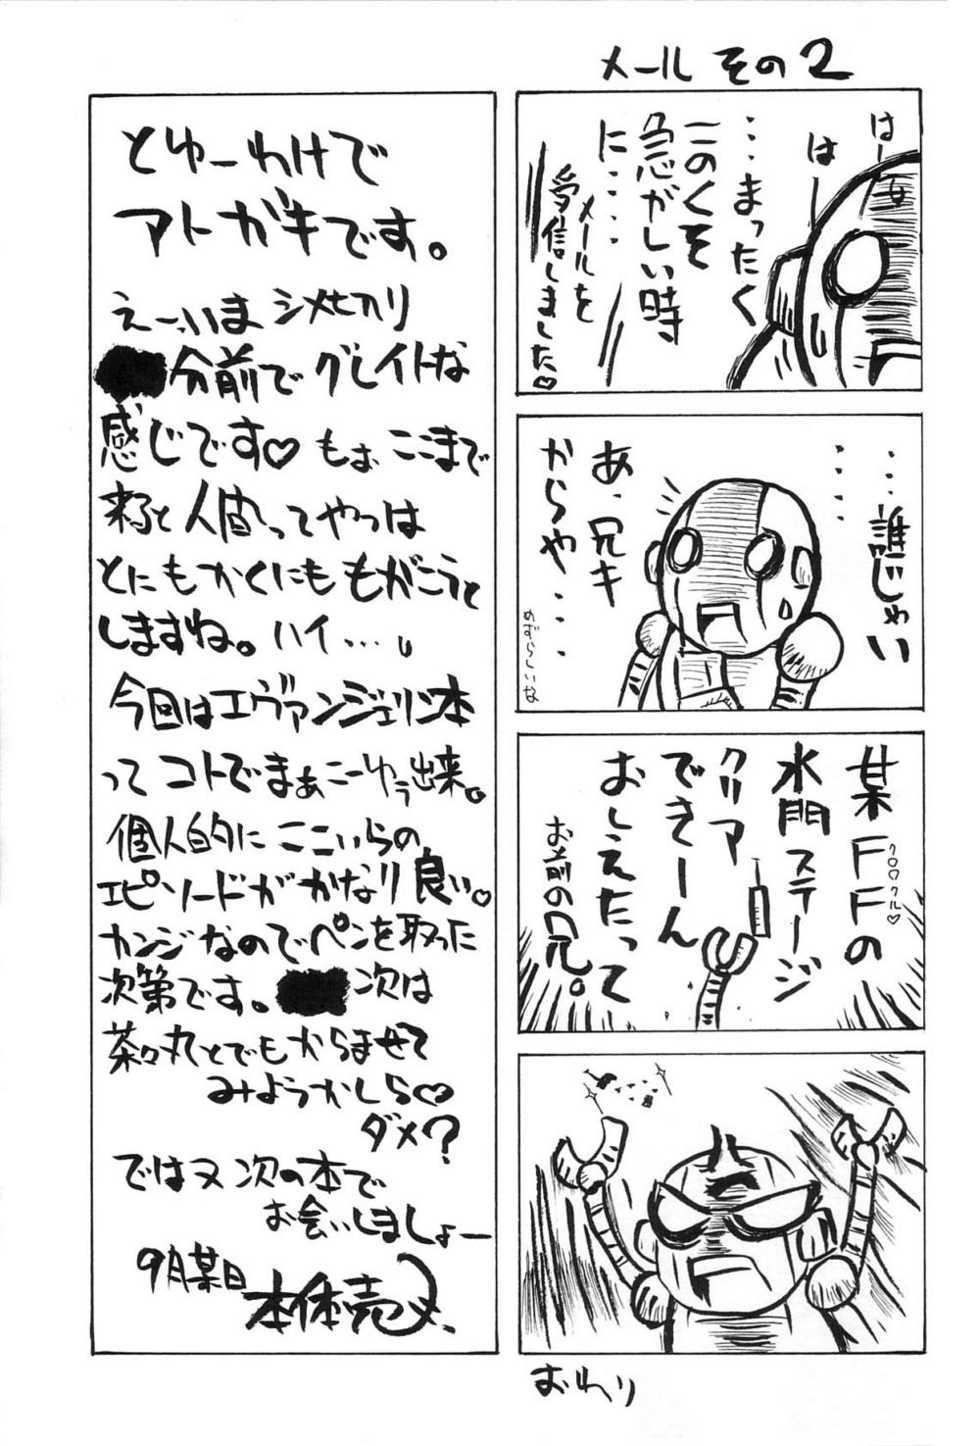 メール その2
はー
はー
・・・まったく
このくそ
急がしい時
に・・・・
メールを
受信しました♡
・・・・誰じゃい
・・・・
あ、兄キ
からや・・・・
めずらしいな
某FFの
クロ〇クル♡
水門ステージ
クリア
できーん
おしえたって
お前の兄。
おわり
とゆーわけで
アトガキです。
えーいま シメキリ
分前で グレイトな
感じです♡ もぉ ここまで
来ると 人間ってやつは
とにもかくにも もがこうと
しますね。 ハイ…。
今回は エヴァンジェリン本
って コトで まぁ こーゆう 出来。
個人的に ここいらの
エピソードが かなり 良い♡
カンジなので ペンを 取った
次第です。 次は
茶々丸とでも からませて
みようかしら♡
ダメ?
ではヌ 次の本で
お会いしましょー
9月某日
本体売